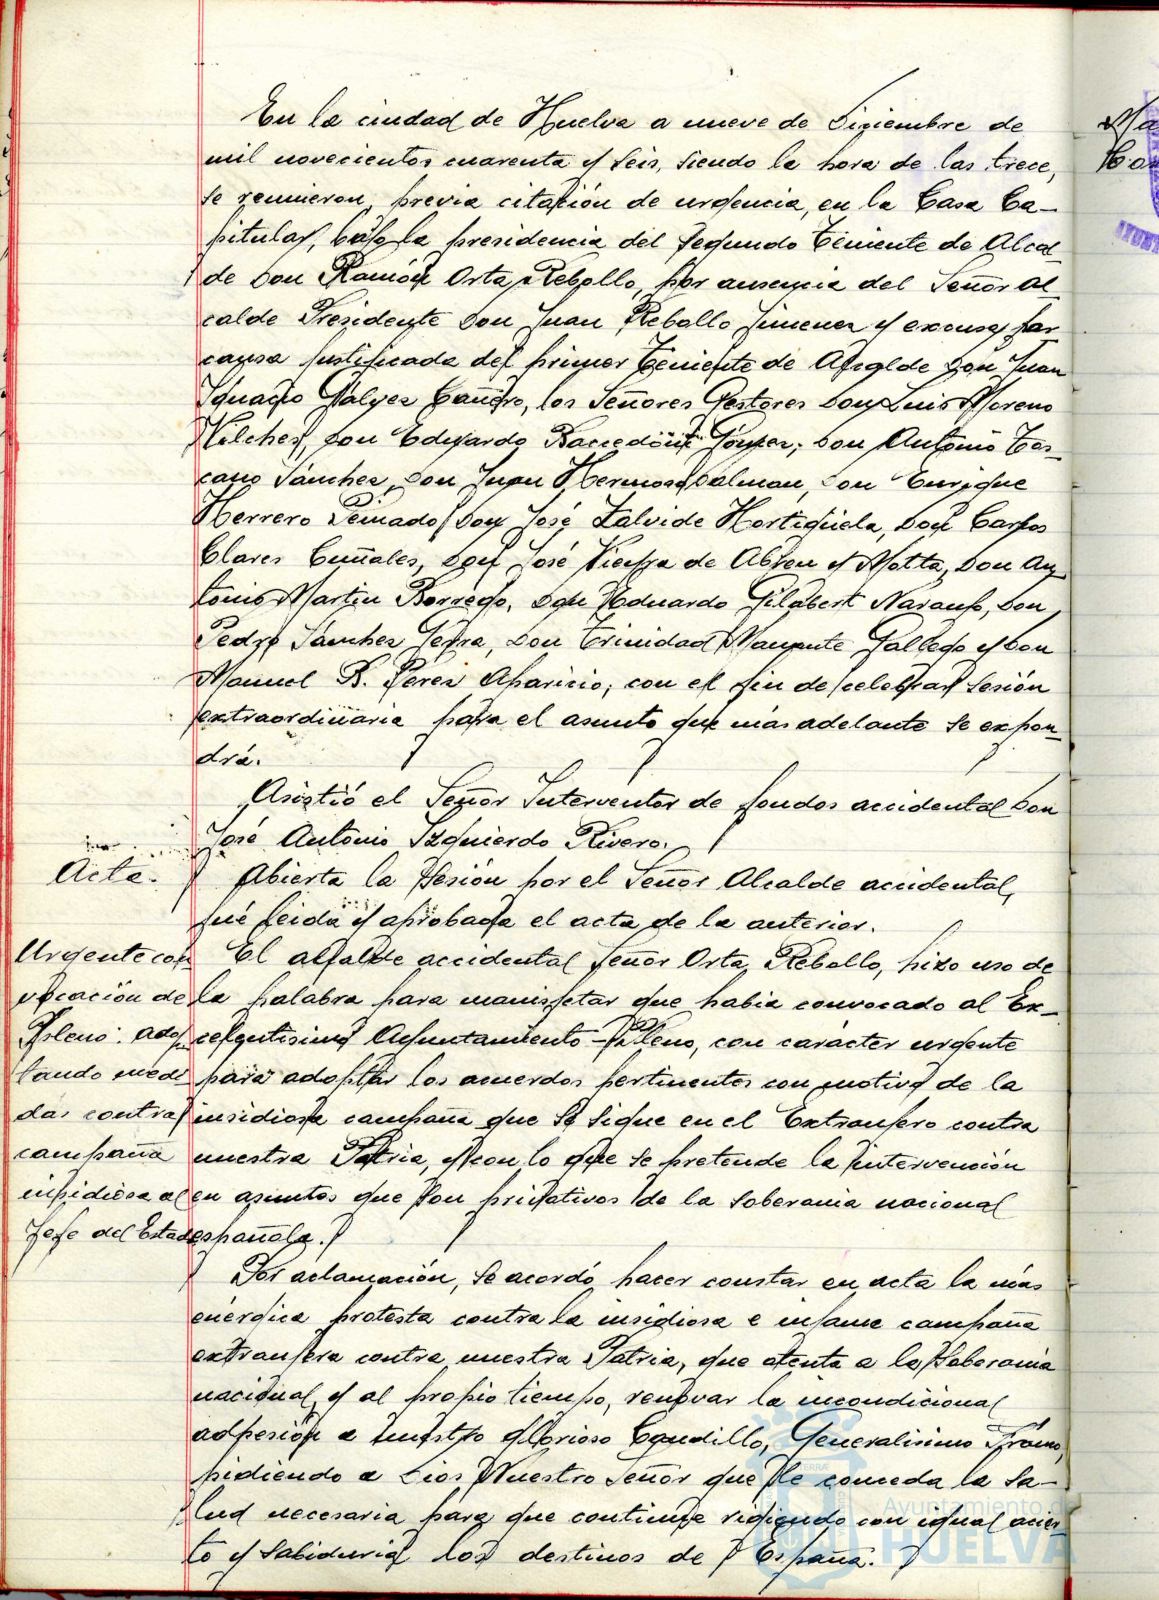 En la ciudad de Huelva a nueve de Diciembre de
mil novecientos cuarenta y seis, siendo la hora de las trece,
se reunieron, previa citación de urgencia, en la Casa Ca-
pitular, bajo la presidencia del Segundo Teniente de Alcal-
de Don Ramón Orta Rebollo, por ausencia del Señor Al-
calde Presidente Don Juan Rebollo Jimenez y excusa por
causa justificada del primer Teniente de Alcalde Don Juan
Ignacio Galvez Cañero, los Señores Gestores Don Luis Moreno
Vilches, Don Eduardo Gomez, Don Antonio Tos-
cano Sánchez, Don Juan Hermoso Dalman, Don Enrique
Herrero Peinado, Don José Zalvide Hortigüela, Don Carlos
Clares Cuñales, Don José Vieyra de Abreu y Motta, Don An-
tonio Martin Borrego, Don Eduardo Gilabert Naranjo, Don
Pedro Sánchez Serra, Don Trinidad Gallego y Don
Manuel B. Pérez Aparicio; con el fin de celebrar sesión
extraordinaria para el asunto que más adelante se expon-
drá.
Asistió el Señor Interventor de fondos accidental Don
José Antonio Izquierdo Rivero.
Acta.
Abierta la sesión por el Señor Alcalde accidental,
fué leida y aprobada el acta de la anterior.
Urgente con
vocación de
Pleno: adop
tando medi
das contra
campaña
insidiosa al
Jefe del Estado
El alcalde accidental Señor Orta Rebollo, hizo uso de
la palabra para manifestar que habia convocado al Ex-
celentisimo Ayuntamiento-Pleno, con carácter urgente
para adoptar los acuerdos pertinentes con motivo de la
insidiosa campaña que se sigue en el Extranjero contra
nuestra Patria, y con lo que se pretende la intervención
en asuntos que son privativos de la soberania nacional
española.
Por aclamación, se acordó hacer constar en acta la más
enérgica protesta contra la insidiosa e infame campaña
extranjera contra nuestra Patria, que atenta a la Soberania
nacional, y al propio tiempo, renovar la incondicional
adhesión a nuestro glorioso Caudillo, Generalisimo Franco,
pidiendo a Dios Nuestro Señor que le conceda la sa-
lud necesaria para que continue rigiendo con igual acier-
to y sabiduria los destinos de España.
Ayuntamiento de
HUELVA